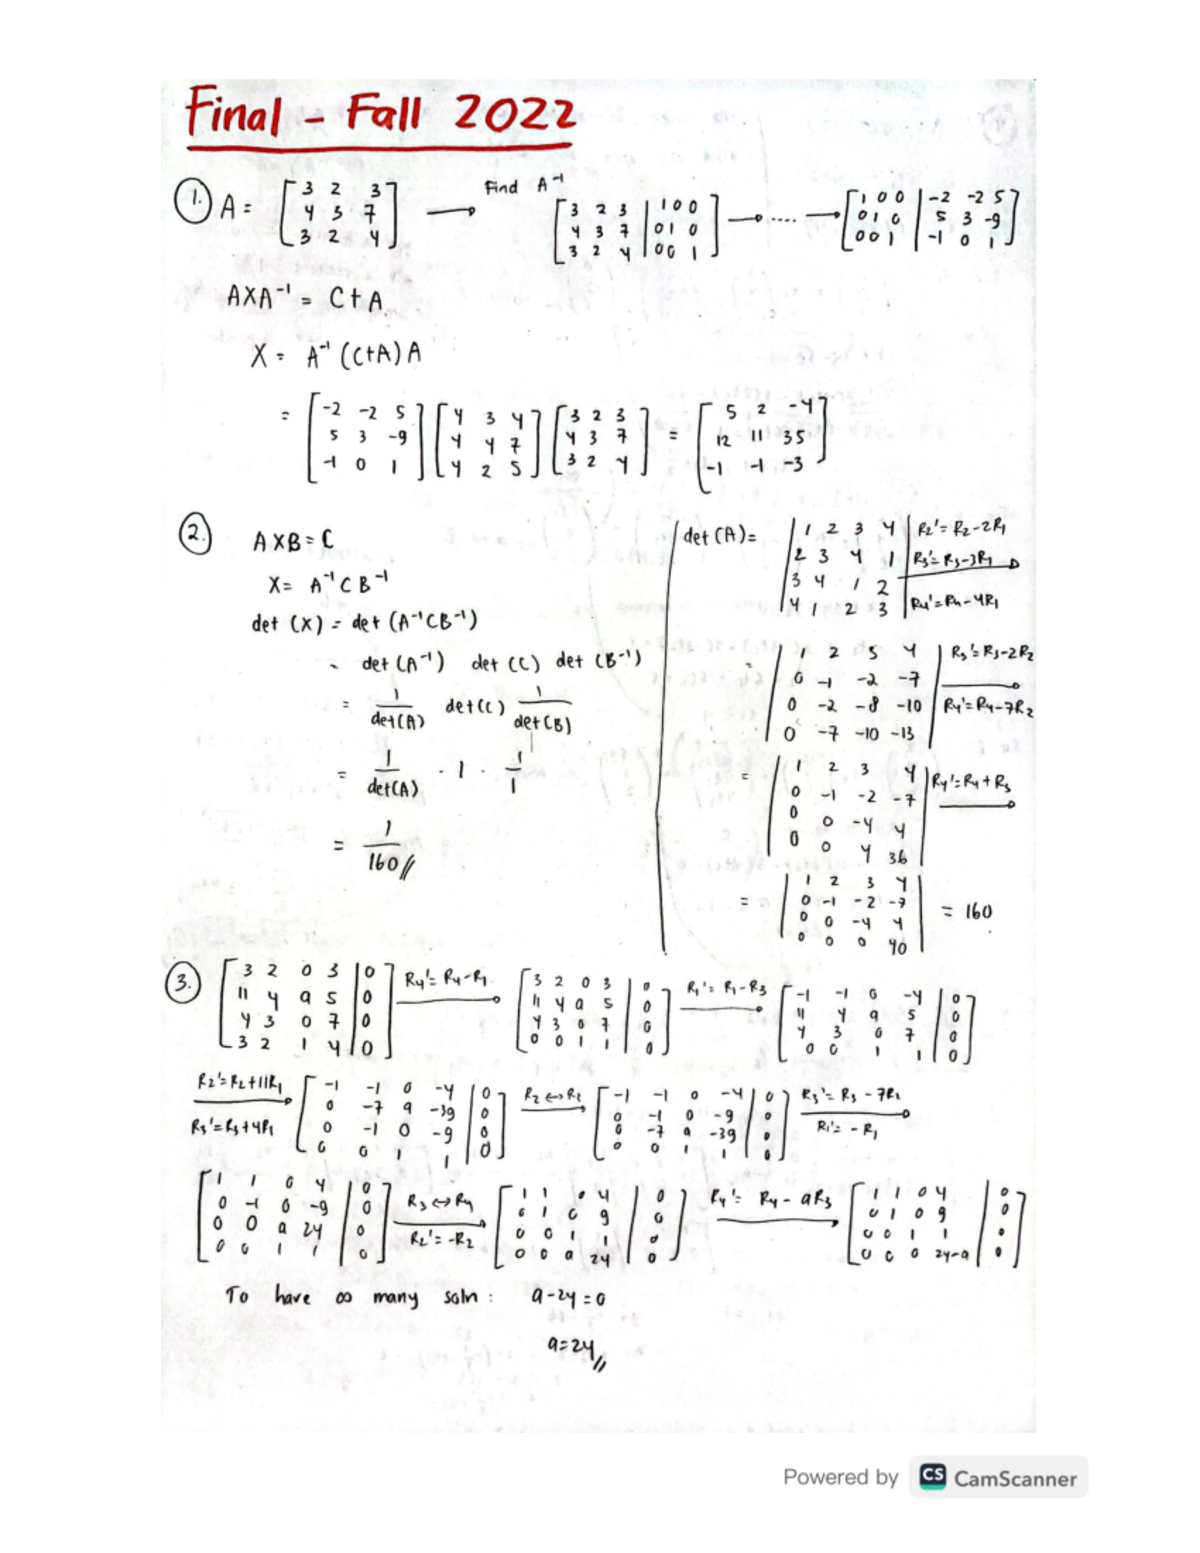 Final - Fall 2022
1. A = [3 2 3; 4 3 7; 3 2 4] → Find A⁻¹ [3 2 3 | 1 0 0; 4 3 7 | 0 1 0; 3 2 4 | 0 0 1] → .... → [1 0 0 | -2 -2 5; 0 1 0 | 5 3 -9; 0 0 1 | -1 0 1]
AXA⁻¹ = C+A
X = A⁻¹ (C+A) A
= [-2 -2 5; 5 3 -9; -1 0 1] [4 3 4; 4 4 7; 4 2 5] [3 2 3; 4 3 7; 3 2 4] = [5 2 -4; 12 11 35; -1 -1 -3]
2. AXB = C
X = A⁻¹ C B⁻¹
det (X) = det (A⁻¹CB⁻¹)
= det (A⁻¹) det (C) det (B⁻¹)
= 1/det(A) det(C) 1/det(B)
= 1/det(A) · 1 · 1/1
= 1/160 //
det (A) = |1 2 3 4; 2 3 4 1; 3 4 1 2; 4 1 2 3| R2' = R2-2R1 R3' = R3-3R1 → R4' = R4-4R1
= |1 2 3 4; 0 -1 -2 -7; 0 -2 -8 -10; 0 -7 -10 -13| R3' = R3-2R2 → R4' = R4-7R2
= |1 2 3 4; 0 -1 -2 -7; 0 0 -4 4; 0 0 4 36| R4' = R4+R3 →
= |1 2 3 4; 0 -1 -2 -7; 0 0 -4 4; 0 0 0 40| = 160
3. [3 2 0 3 | 0; 11 4 a 5 | 0; 4 3 0 7 | 0; 3 2 1 4 | 0] R4' = R4-R1 → [3 2 0 3 | 0; 11 4 a 5 | 0; 4 3 0 7 | 0; 0 0 1 1 | 0] R1' = R1-R3 → [-1 -1 0 -4 | 0; 11 4 a 5 | 0; 4 3 0 7 | 0; 0 0 1 1 | 0]
R2' = R2+11R1 → R3' = R3+4R1 [-1 -1 0 -4 | 0; 0 -7 a -39 | 0; 0 -1 0 -9 | 0; 0 0 1 1 | 0] R2 ↔ R2 → [-1 -1 0 -4 | 0; 0 -1 0 -9 | 0; 0 -7 a -39 | 0; 0 0 1 1 | 0] R3' = R3 - 7R2 → R1' = -R1
[1 1 0 4 | 0; 0 -1 0 -9 | 0; 0 0 a 24 | 0; 0 0 1 1 | 0] R3 ↔ R4 → R2' = -R2 [1 1 0 4 | 0; 0 1 0 9 | 0; 0 0 1 1 | 0; 0 0 a 24 | 0] R4' = R4 - aR3 → [1 1 0 4 | 0; 0 1 0 9 | 0; 0 0 1 1 | 0; 0 0 0 24-a | 0]
To have ∞ many soln : a-24 = 0
a=24 //
Powered by CS CamScanner